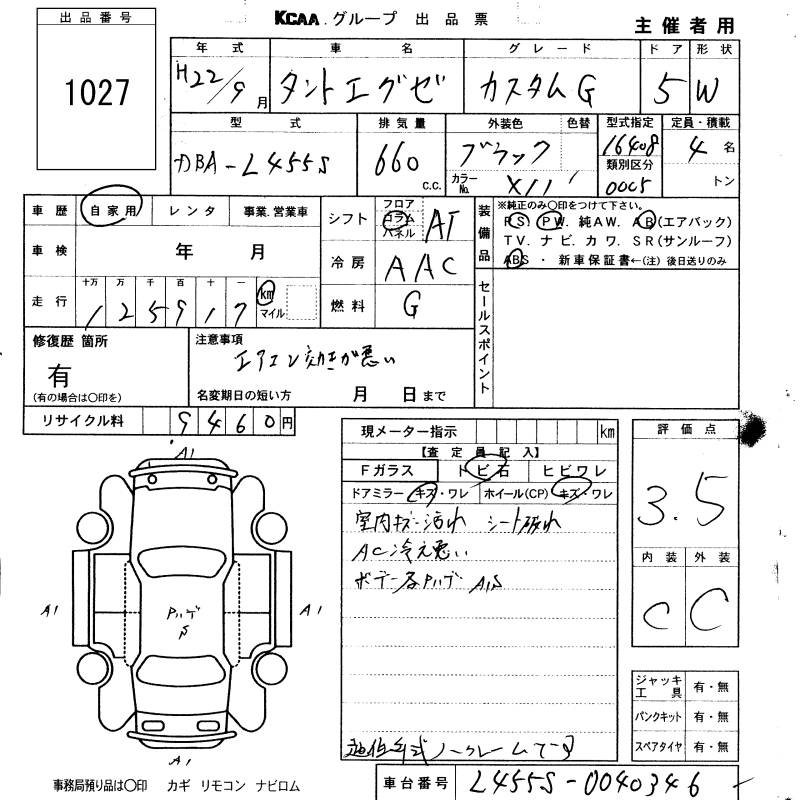 出品番号
1027
KCAA.グループ 出品票
主催者用
年式 車名 グレード ドア 形状
H22/9月 タントエグゼ カスタムG 5 W
型式 排気量 外装色 色替 型式指定 定員・積載
DBA-L455S 660 C.C. ブラック 16408 4名
カラーNo. X11 類別区分 0005 トン
車歴 自家用 レンタ 事業.営業車
車検 年 月
走行 十万 万 千 百 十 一
125917 km マイル
シフト フロア コラム パネル AT
冷房 AAC
燃料 G
装備品
※純正のみ〇印をつけて下さい。
PS. PW. 純AW. AB(エアバック)
TV. ナビ. カワ. SR(サンルーフ)
ABS ・ 新車保証書←(注)後日送りのみ
セールスポイント
修復歴 箇所
有
(有の場合は〇印を)
注意事項
エアコン効きが悪い
名変期日の短い方 月 日まで
リサイクル料 9460円
現メーター指示 km
【査定員記入】
Fガラス トビ石 ヒビワレ
ドアミラー キズ・ワレ ホイール(CP) キズ・ワレ
室内キズ汚れ シート破れ
AC冷え悪い
ボデー各部 A1S
評価点
3.5
内装 外装
C C
ジャッキ工具 有・無
パンクキット 有・無
スペアタイヤ 有・無
A1
A1
A1
S
A1
事務局預り品は〇印 カギ リモコン ナビロム
車台番号 L455S-0040346